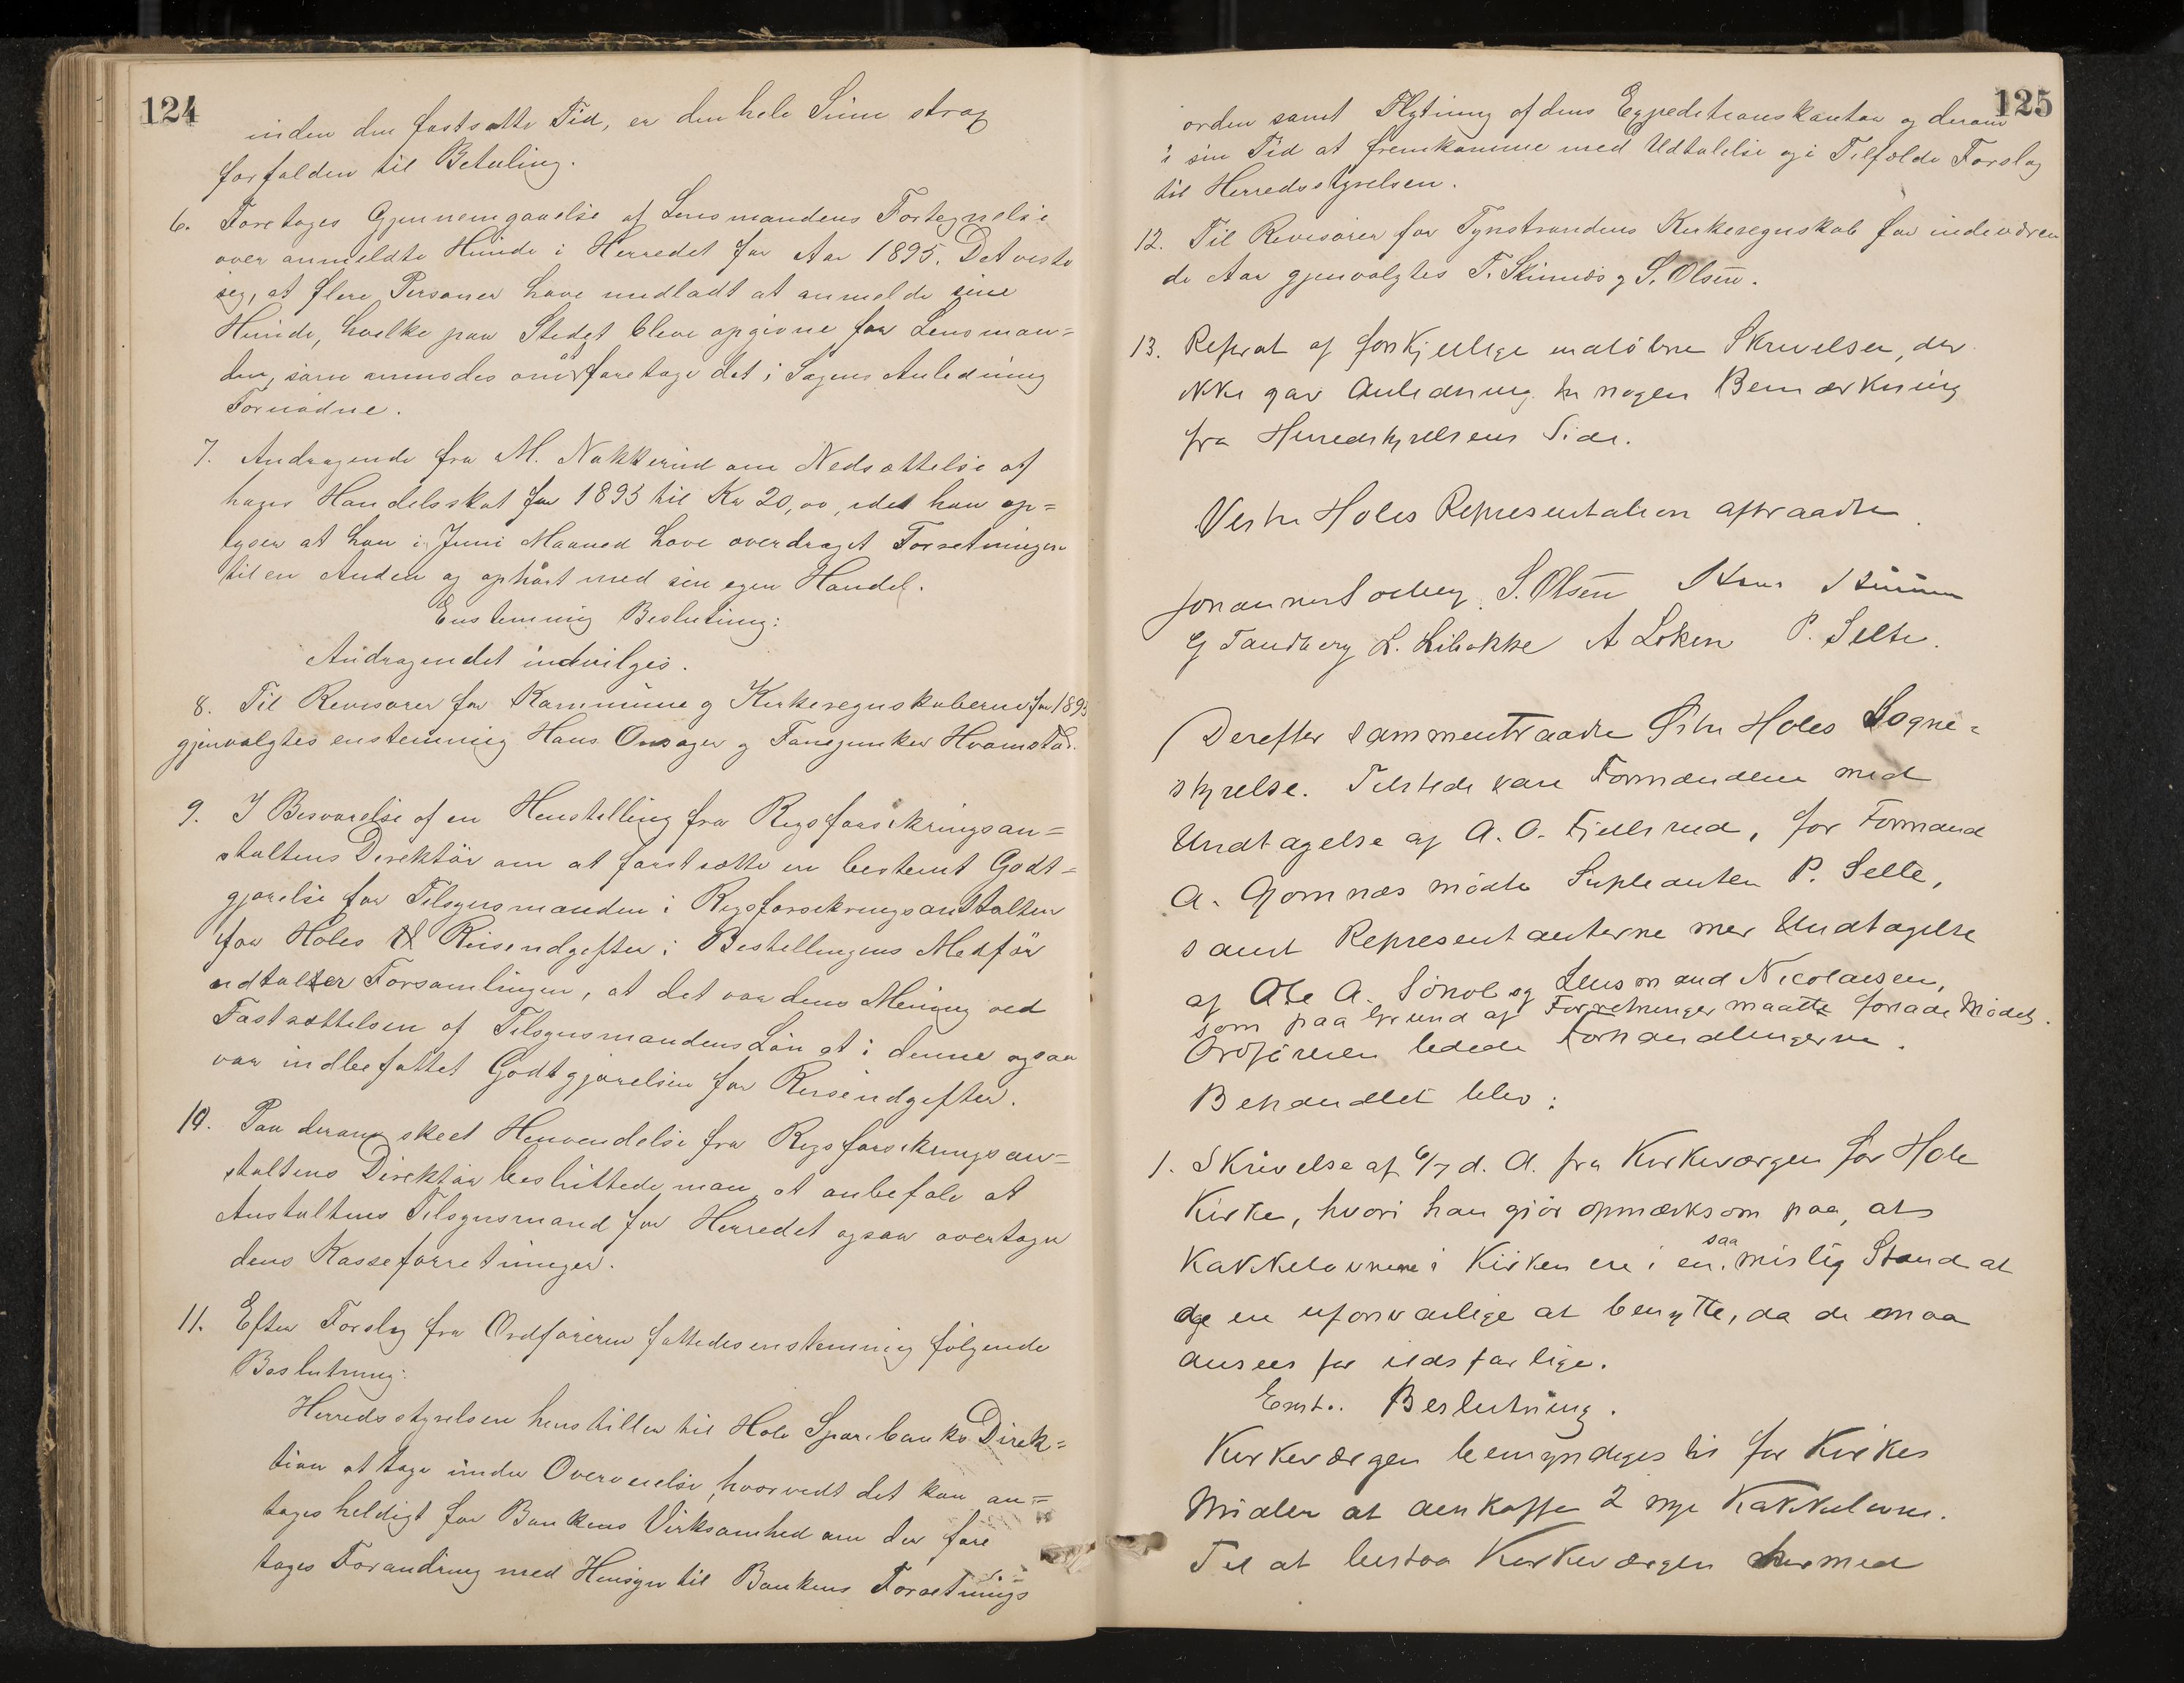 124
inden den fastsatte Tid, er den hele Sum strax
forfalden til Betaling.
6. Foretages Gjennemgaaelse af Lensmandens Fortegnelse
over anmeldte Hunde i Herredet for Aar 1895. Det viste
sig, at flere Personer have undladt at anmelde sine
Hunde, hvilke paa Stedet bleve opgivne for Lensman=
den, som anmodes om at foretage det i Sagens Anledning
Fornødne.
7. Andragende fra M. Nakkerud om Nedsættelse af
hans Handelsskat for 1893 til Kr 20,00, idet han op=
lyser at han i Juni Maaned have overdraget Forretningen
til en Anden og ophørt med sin egen Handel.
Enstemmig Beslutning:
Andragendet indvilges.
8. Til Revisorer for Kommune og Kirkeregnskaberne for 1895
gjenvalgtes enstemmig Hans Onsager og Fanejunker Hvamstad.
9. I Besvarelse af en Henstilling fra Rigsforsikringsan=
staltens Direktör om at fastsætte en bestemt Godt=
gjørelse for Tilsynsmanden i Rigsforsikringsanstalten
for Holes Reiseudgifter i Bestillingens Medför
udtalter Forsamlingen, at det var dens Mening ved
Fastsættelsen af Tilsynsmandens Løn at i denne ogsaa
var indbefattet Godtgjørelsen for Reiseudgifter.
10. Paa derom skeet Henvendelse fra Rigsforsikringsan=
staltens Direktør besluttede man at anbefale at
Anstaltens Tilsynsmand for Herredet ogsaa overtager
dens Kasseforretninger.
11. Efter Forslag fra Ordføreren fattedes enstemmig følgende
Beslutning:
Herredsstyrelsen henstiller til Hole Sparebanks Direk=
tion at tage under Overveielse, hvorvidt det kan an=
tages heldigt for Bankens Virksomhed om der fore
tages Forandring med Hensyn til Bankens Forretnings
125
orden samt Flytning af dens Expeditionskontor og derom
i sin Tid at fremkomme med Udtalelse og i Tilfælde Forslag
til Herredsstyrelsen.
12. Til Revisorer for Tynstrandens Kirkeregnskab for indeværen
de Aar gjenvalgtes T. Skimnæs og S. Olsen.
13. Referat af forskjellige indløbne Skrivelser, der
ikke gav Anledning til nogen Bemærkning
fra Herredsstyrelsens Side.
Vestre Holes Representation aftraadte.
Johannes Solberg. S. Olsen
G Tandberg L. Libakke A Løken P. Selte.
Derefter sammentraadte Østre Holes Sogne=
styrelse. Tilstede vare Formændene med
Undtagelse af A. O. Fjeldsrud, for Formand
A. Gomnæs mödte Supleanten P. Selte,
samt Representanterne med Undtagelse
af Ole A. Sønsl og Lensmand Nicolaisen,
som paa Grund af Forretninger maatte forlade Mødet.
Ordføreren ledede Forhandlingerne.
Behandlet blev:
1. Skrivelse af 6/7 d. A. fra Kirkeværgen for Hole
Kirke, hvori han gjør opmærksom paa, at
Kakkelovnene i Kirken ere i en saa mislig Stand at
de ere uforsvarlige at benytte, da de maa
ansees for ildsfarlige.
Enst. Beslutning.
Kirkeværgen bemyndiges til for Kirkes
Midler at anskaffe 2 nye Kakkelovne.
Til at bistaa Kirkeværgen hermed